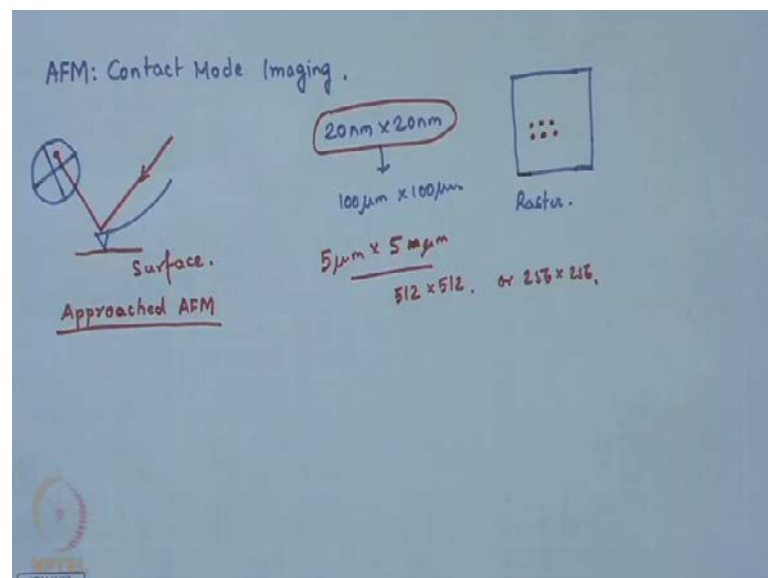 AFM: Contact Mode Imaging.
20nm × 20nm
100µm × 100µm
Raster.
Surface.
5µm × 5 µm
512 × 512. or 256 × 256.
Approached AFM
NPTEL